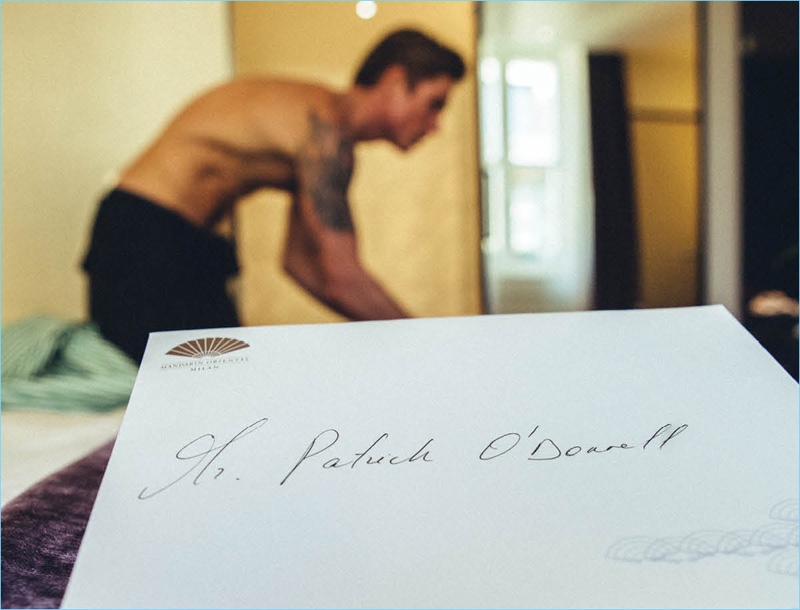 MANDARIN ORIENTAL
MILAN
Mr. Patrick O'Donnell